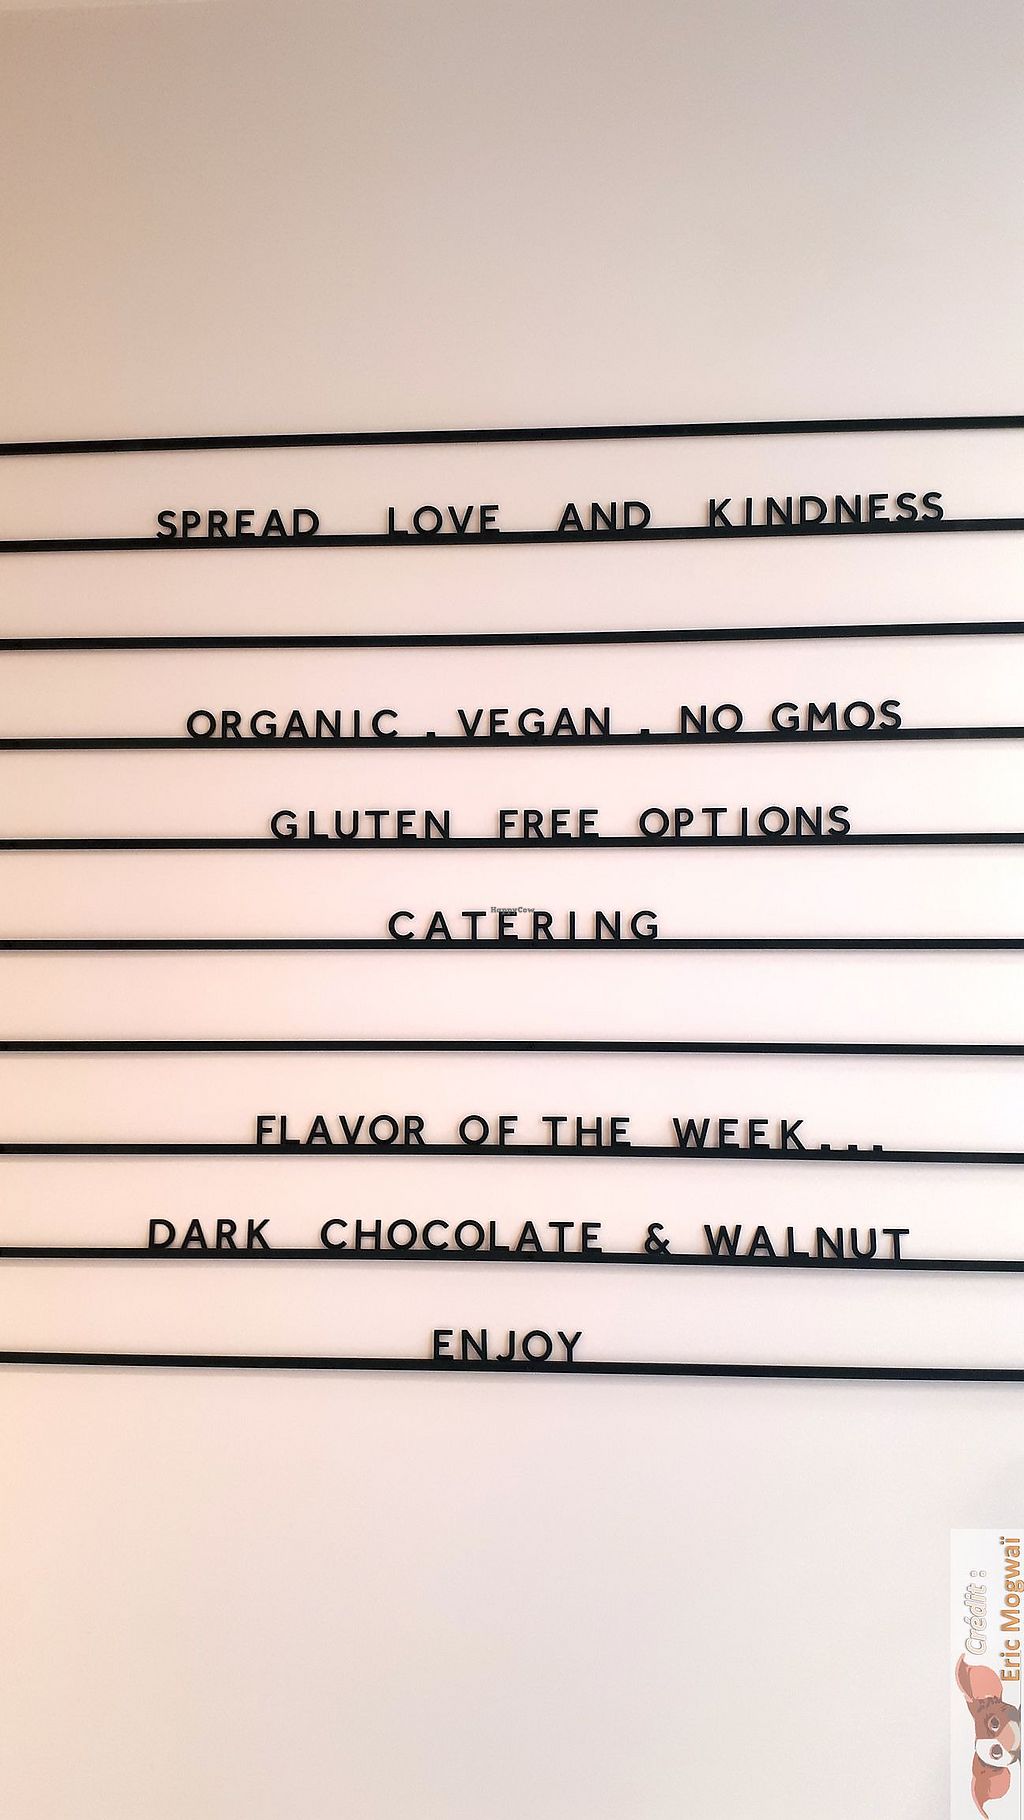 SPREAD LOVE AND KINDNESS
ORGANIC . VEGAN . NO GMOS
GLUTEN FREE OPTIONS
HappyCow
CATERING
FLAVOR OF THE WEEK...
DARK CHOCOLATE & WALNUT
ENJOY
Crédit :
Eric Mogwaï